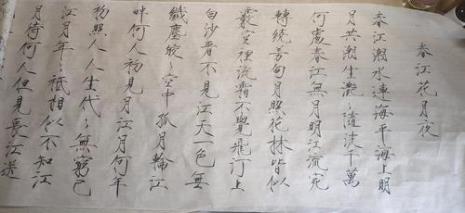 春江花月夜
春江潮水連海平海上明
月共潮生灩〻隨波千萬
何處春江無月明江流宛
轉繞芳甸月照花林皆似
霰空裡流霜不覺飛汀上
白沙看不見江天一色無
纖塵皎〻空中孤月輪江
畔何人初見月江月何年
初照人人生代〻無窮已
江月年〻祇相似不知江
月待何人但見長江送